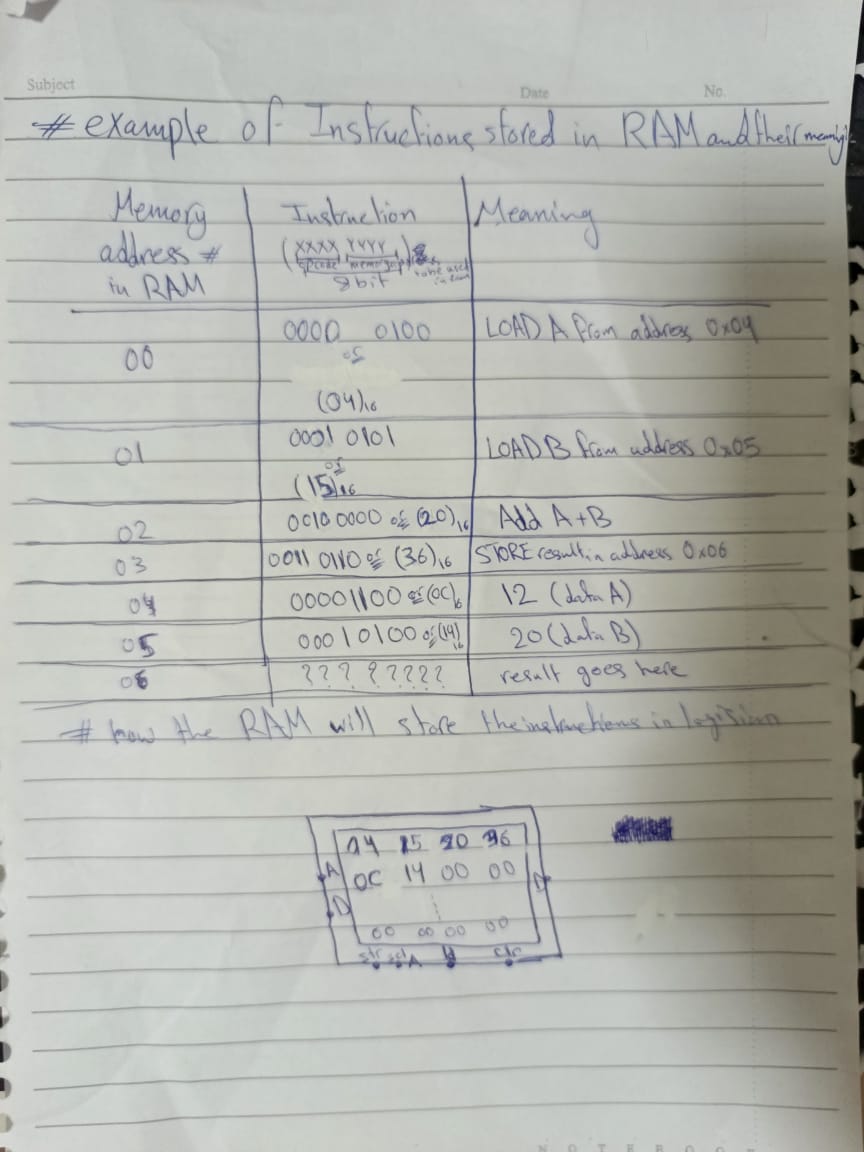 Subject
Date
No.
# example of Instructions stored in RAM and their meaning
Memory address # in RAM
Instruction (XXXX YYYY) opcode memory 8bit to be used
Meaning
00
0000 0100 or (04)16
LOAD A from address 0x04
01
0001 0101 or (15)16
LOAD B from address 0x05
02
0010 0000 or (20)16
Add A+B
03
0011 0110 or (36)16
STORE result in address 0x06
04
00001100 or (0C)16
12 (data A)
05
00010100 or (14)16
20 (data B)
06
????????
result goes here
# how the RAM will store the instructions in logisim
04 15 20 36
A
0C 14 00 00
D
D
00 00 00 00
str sel A ld clr
NOTEBOOK